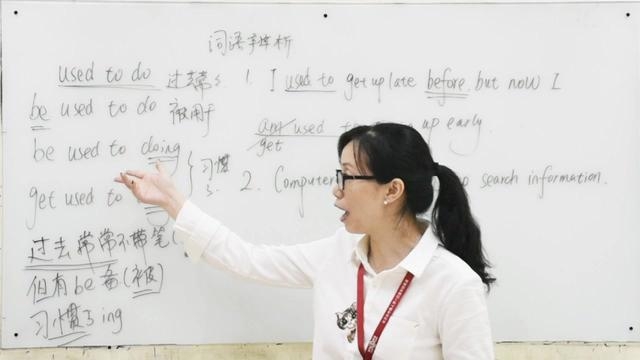 词语辨析
used to do 过去常常
be used to do 被用于
be used to doing
get used to
习惯了
过去常常不带
但有be 希(被)
习惯了ing
1. I used to get up late before, but now I
am used up early.
get
2. Computer to search information.